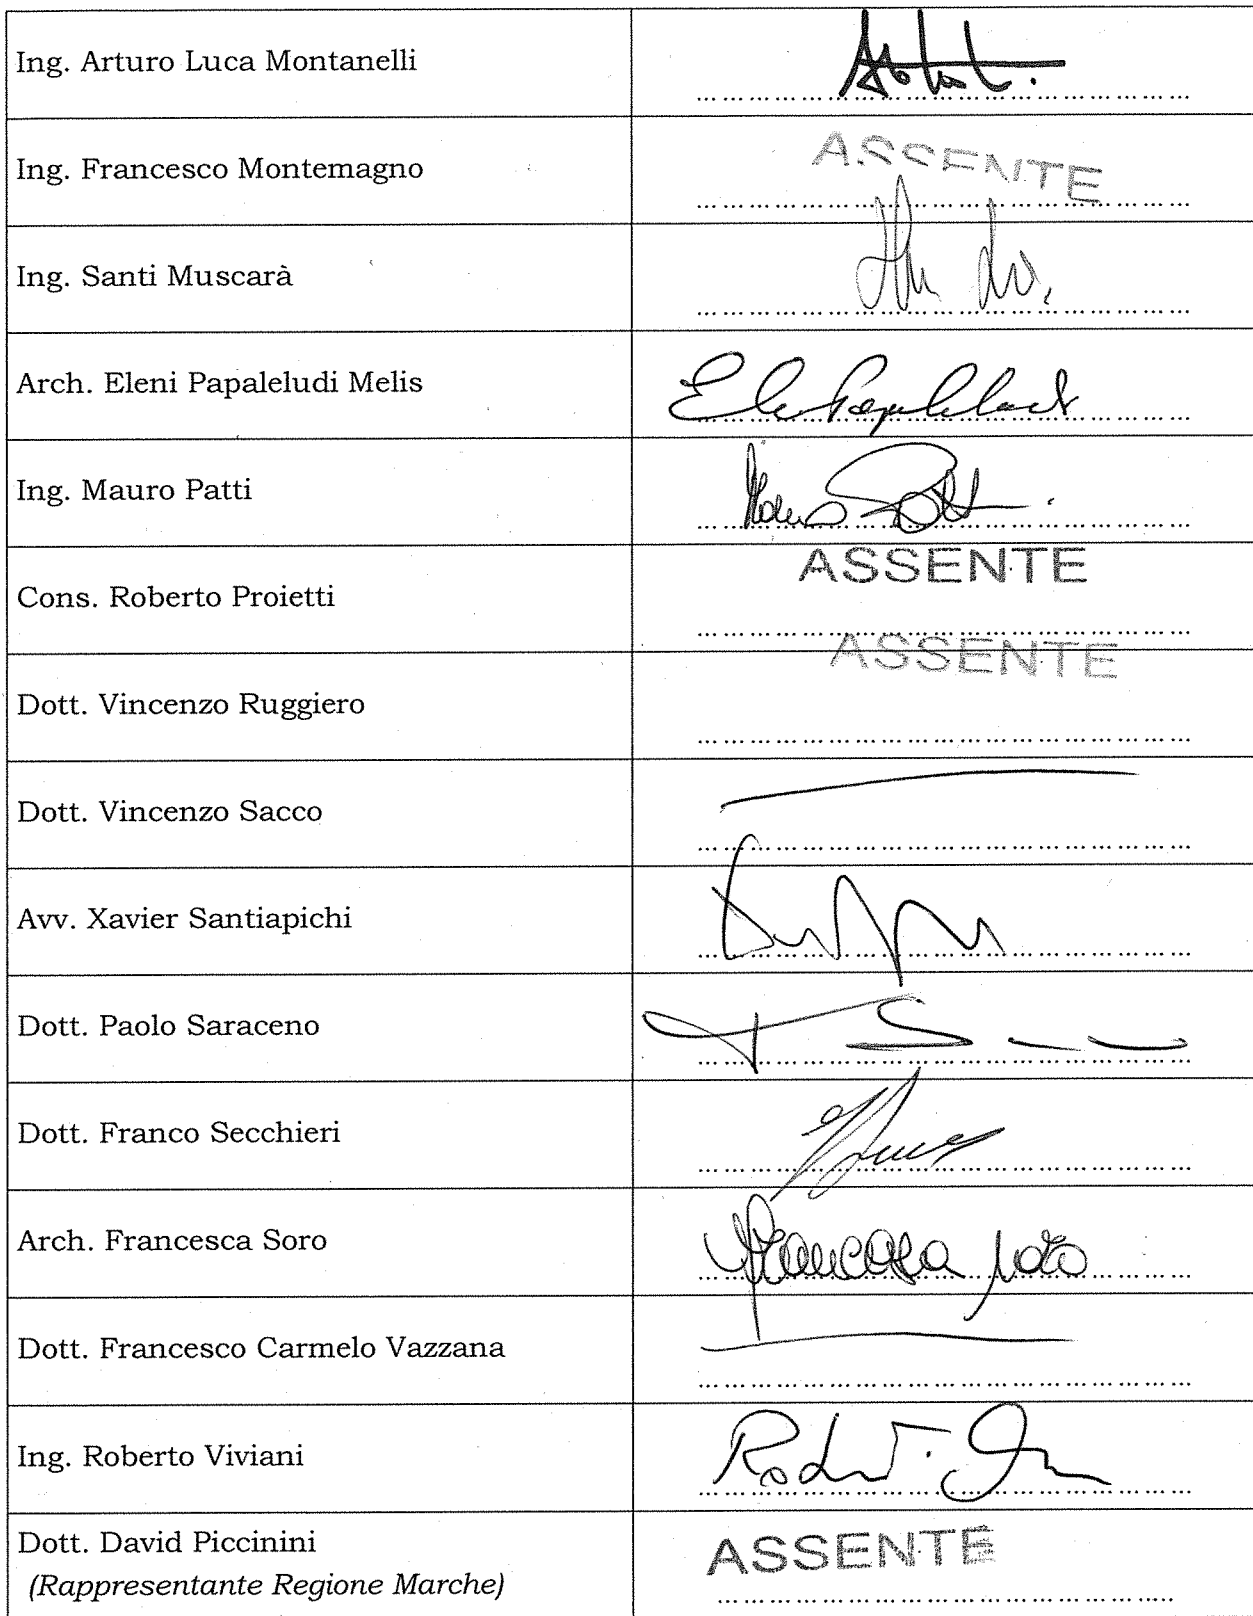 Ing. Arturo Luca Montanelli
Ing. Francesco Montemagno
ASSENTE
Ing. Santi Muscarà
Arch. Eleni Papaleludi Melis
Ing. Mauro Patti
Mauro Patti
Cons. Roberto Proietti
ASSENTE
Dott. Vincenzo Ruggiero
ASSENTE
Dott. Vincenzo Sacco
Avv. Xavier Santiapichi
Dott. Paolo Saraceno
Dott. Franco Secchieri
Arch. Francesca Soro
Francesca Soro
Dott. Francesco Carmelo Vazzana
Ing. Roberto Viviani
Dott. David Piccinini
ASSENTE
(Rappresentante Regione Marche)